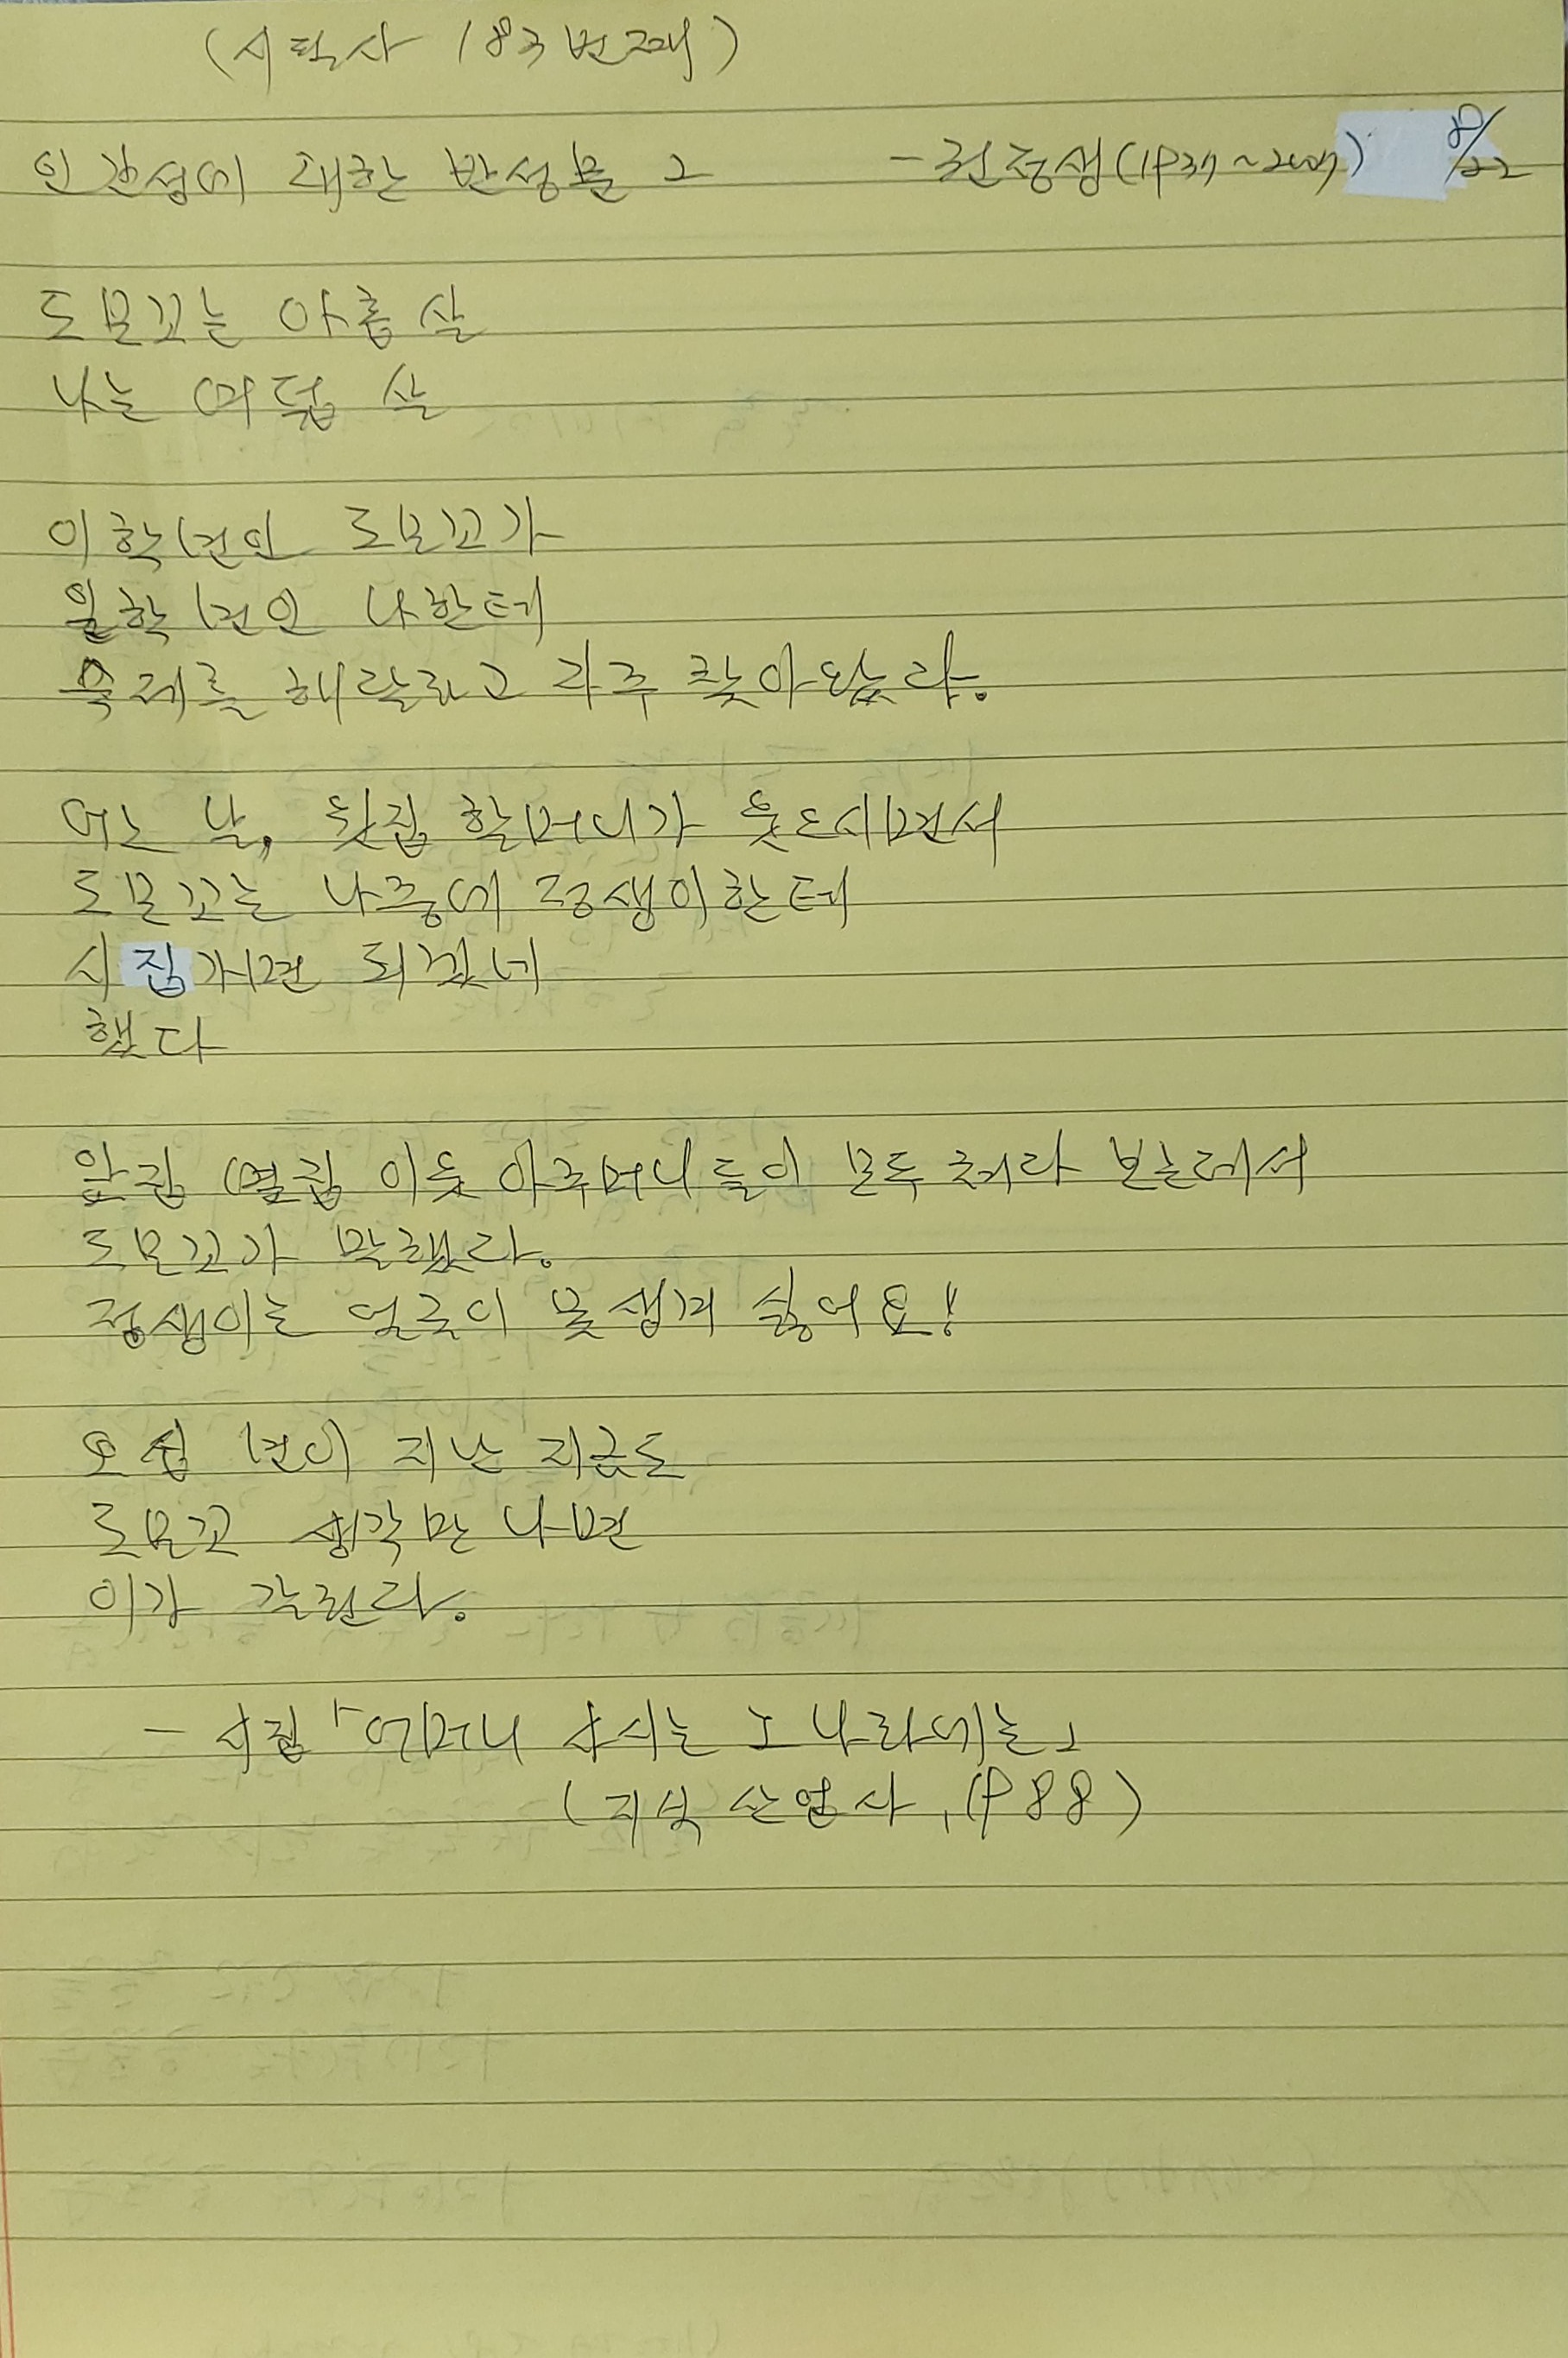 (시필사 183번째)
인간성에 대한 반성문 2 - 권정생(1937~2007) 8/22
도모꼬는 아홉 살
나는 여덟 살
이학년인 도모꼬가
일학년인 나한테
숙제를 해달라고 자주 찾아왔다.
어느 날, 윗집 할머니가 웃으시면서
도모꼬는 나중에 정생이한테
시집가면 되겠네
했다
앞집 옆집 이웃 아주머니들이 모두 쳐다 보는데서
도모꼬가 말했다.
정생이는 얼굴이 못생겨 싫어요!
오십 년이 지난 지금도
도모꼬 생각만 나면
이가 갈린다.
- 시집 「어머니 사시는 그 나라에는」
(지식 산업사, 1988)